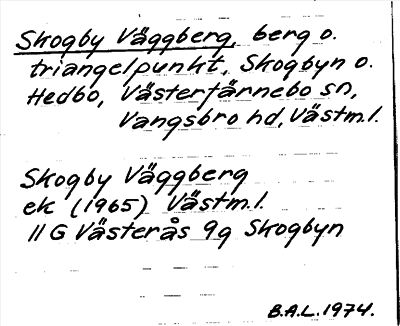 Skogby Väggberg, berg o.
triangelpunkt, Skogbyn o.
Hedbo, Västerfärnebo sn,
Vangsbro hd, Västm.l.
Skogby Väggberg
ek (1965) Västm.l.
11 G Västerås 9g Skogbyn
B.A.L. 1974.